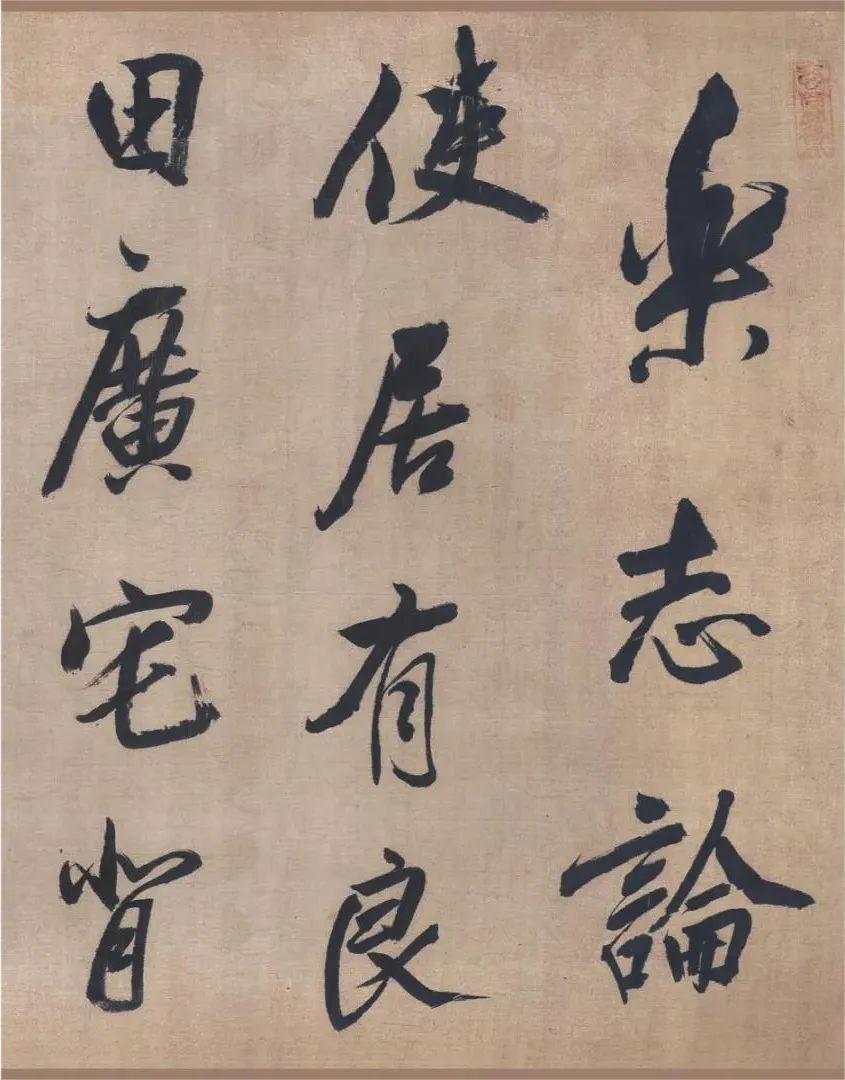 樂志論
使居有良
田廣宅背